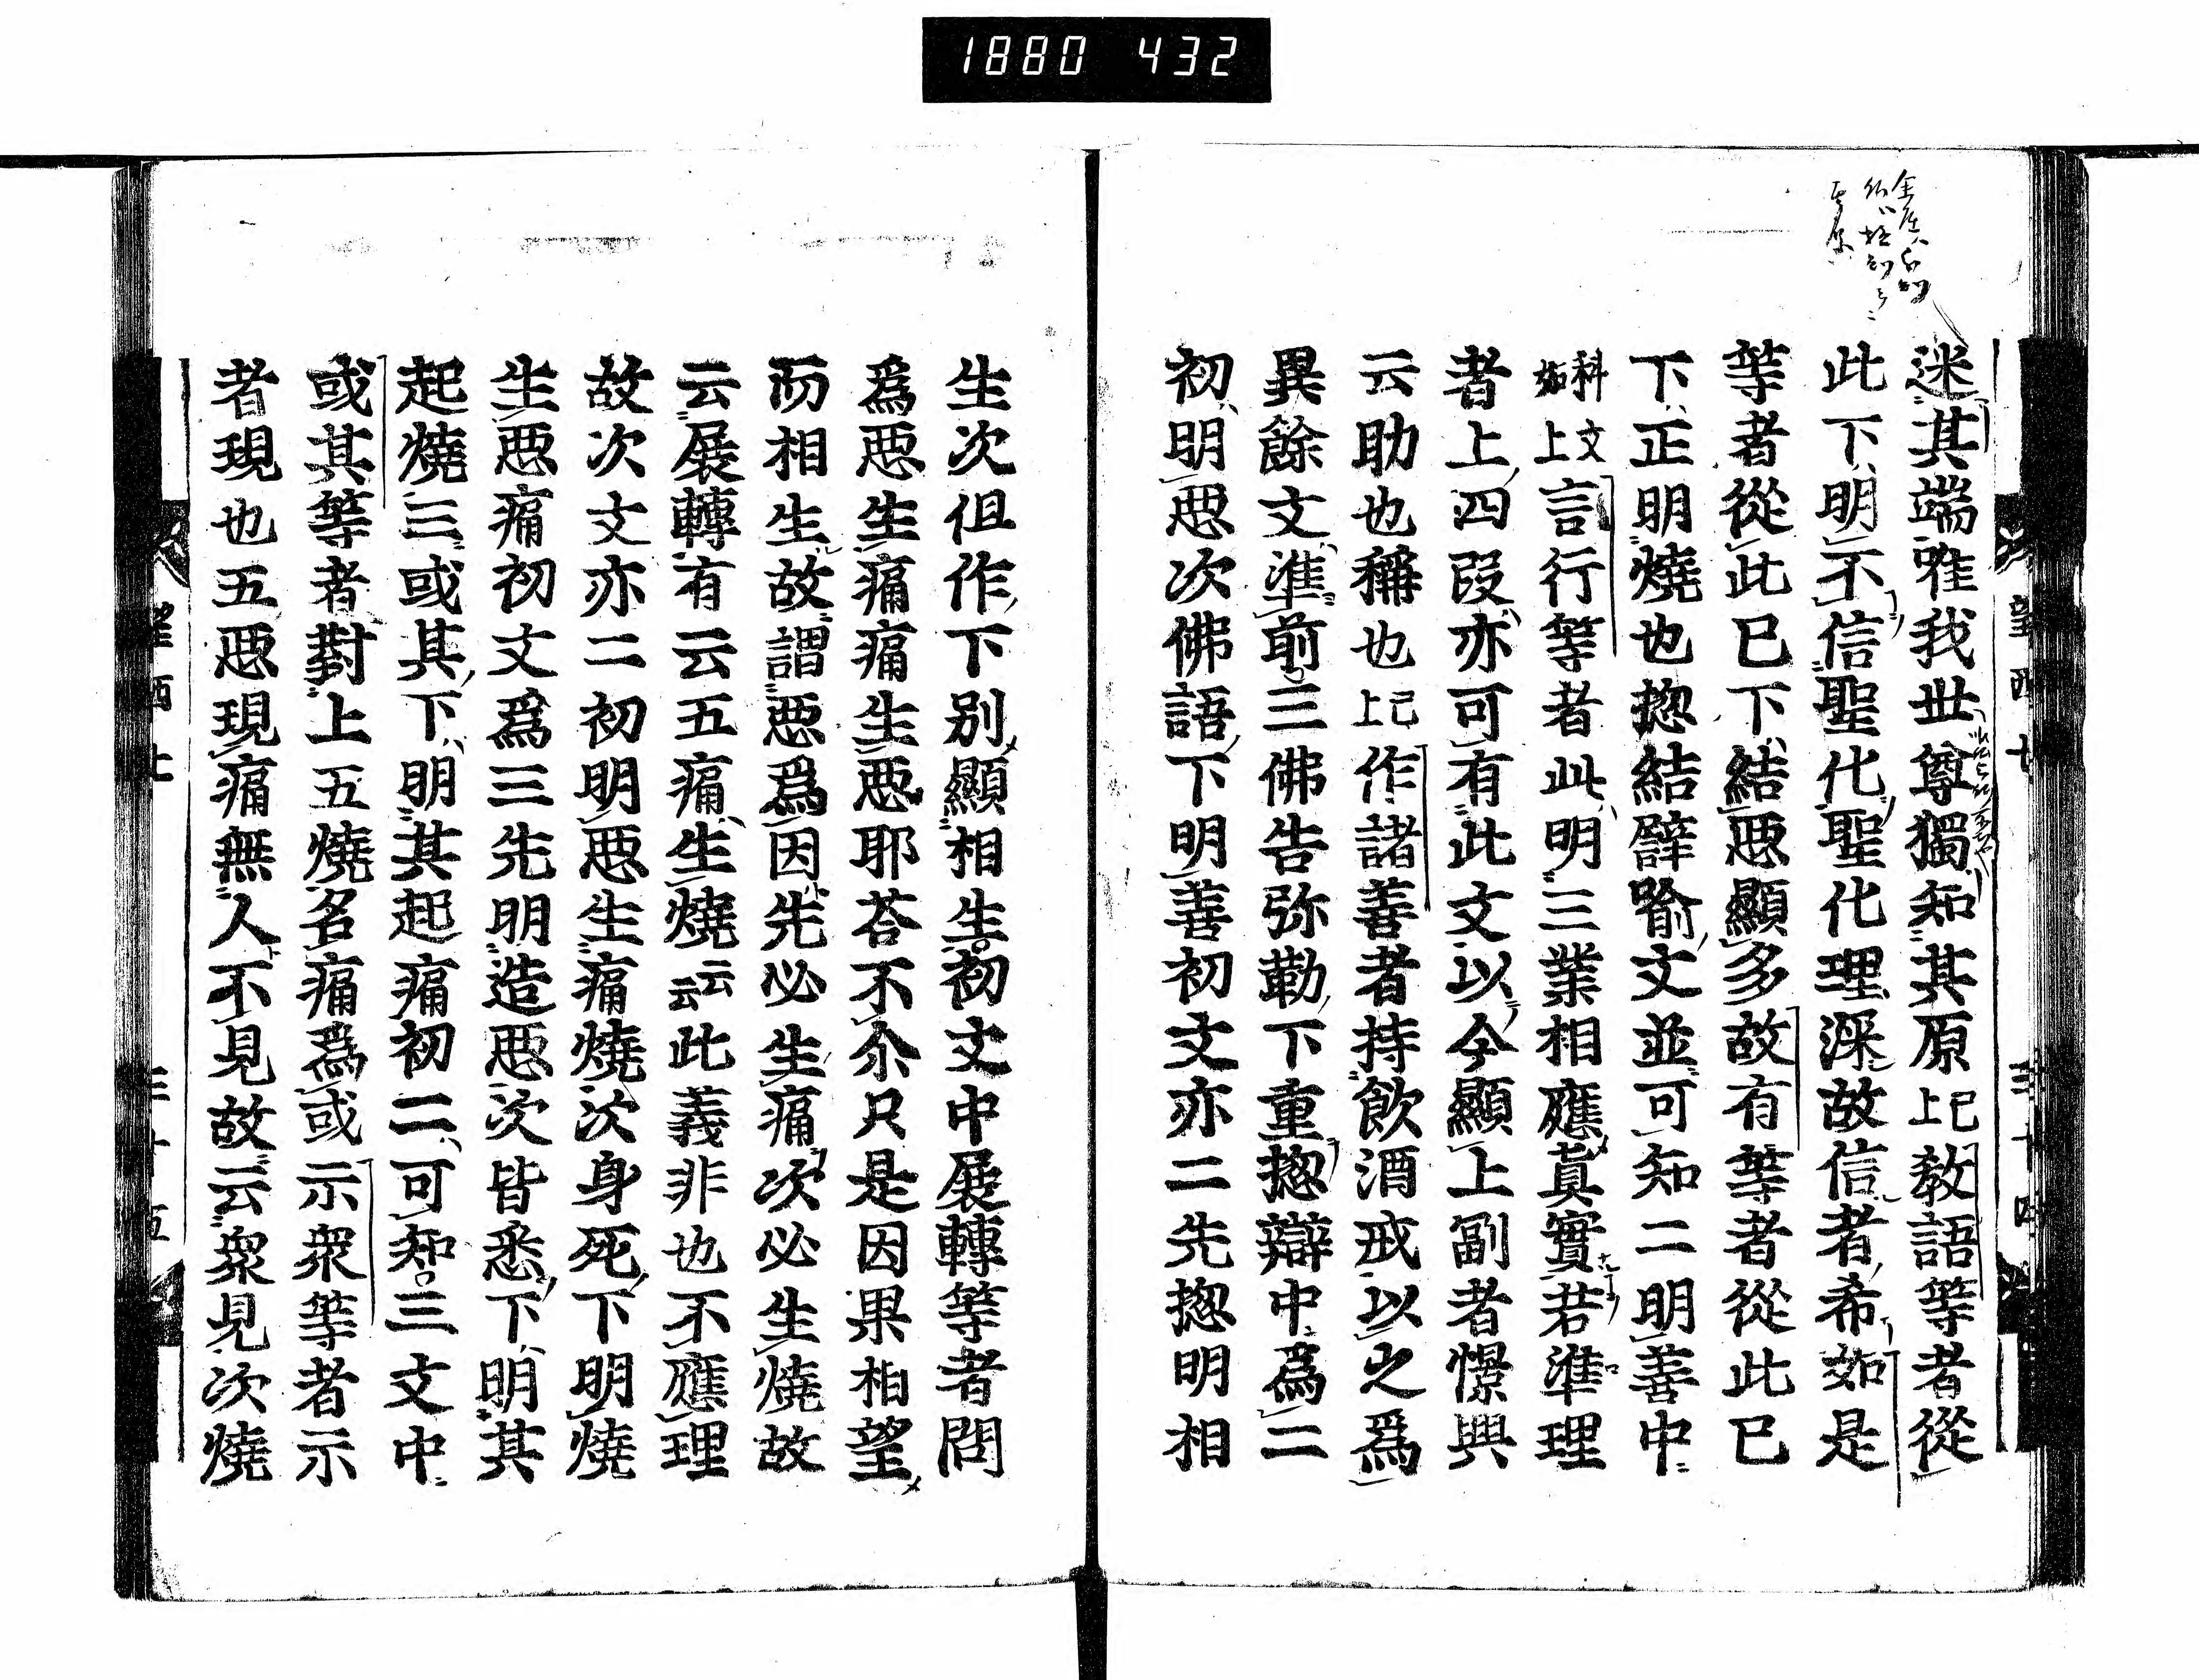 1880 432
迷其端唯我世尊獨知其原已上教語等者從
此下明不信聖化聖化理深故信者希如是
等者從此已下結惡顯多故有等者從此已
下正明燒也揔結譬喻文並可知二明善中
科文如上言行等者此明三業相應真實若準理
者上四段亦可有此文以今顯上副者憬興
云助也稱也已上作諸善者持飲酒戒以之爲
異餘文準前三佛告弥勒下重揔辯中爲二
初明惡次佛語下明善初文亦二先揔明相
生次但作下別顯相生初文中展轉等者問
爲惡生痛痛生惡耶荅不尒只是因果相望
而相生故謂惡爲因先必生痛次必生燒故
云展轉有云五痛生燒云云此義非也不應理
故次文亦二初明惡生痛燒次身死下明燒
生惡痛初文爲三先明造惡次皆悉下明其
起燒三或其下明其起痛初二可知三文中
或其等者對上五燒名痛爲或示衆等者示
者現也五惡現痛無人不見故云衆見次燒